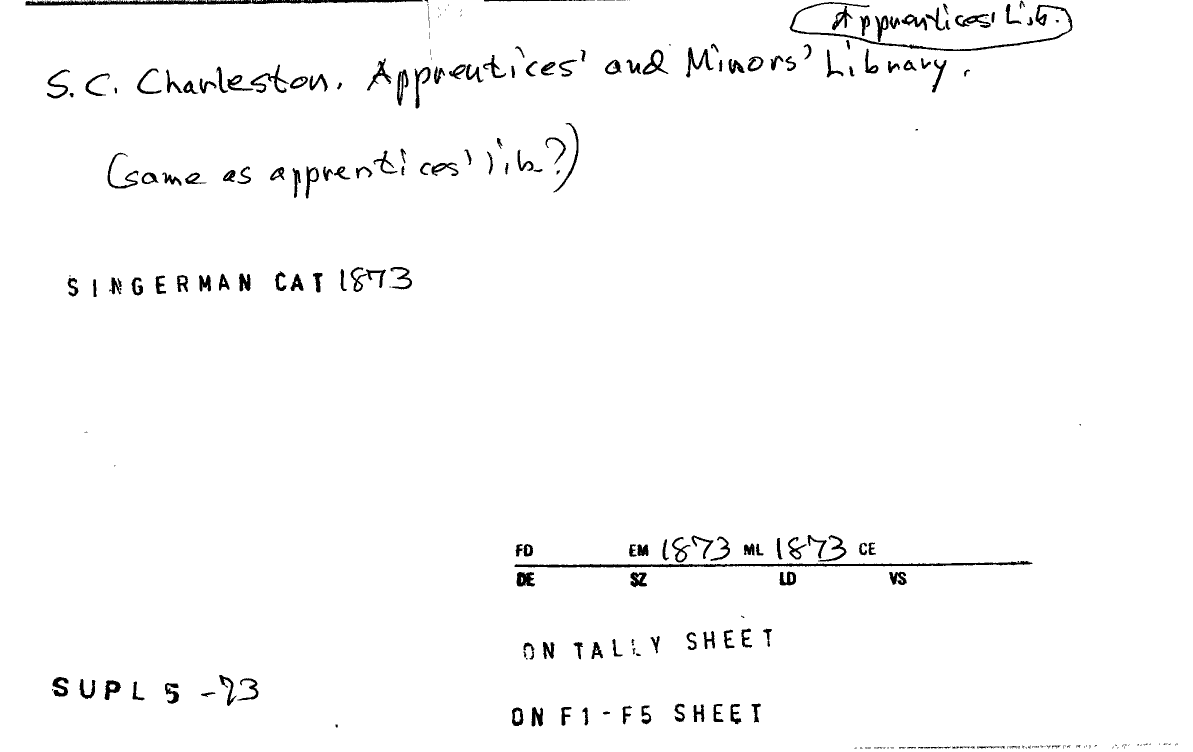 Apprentices' Lib.
S.C. Charleston. Apprentices' and Minors' Library.
(same as apprentices' lib?)
SINGERMAN CAT 1873
FD EM 1873 ML 1873 CE
DE SZ LD VS
ON TALLY SHEET
SUPL 5 -73
ON F1-F5 SHEET